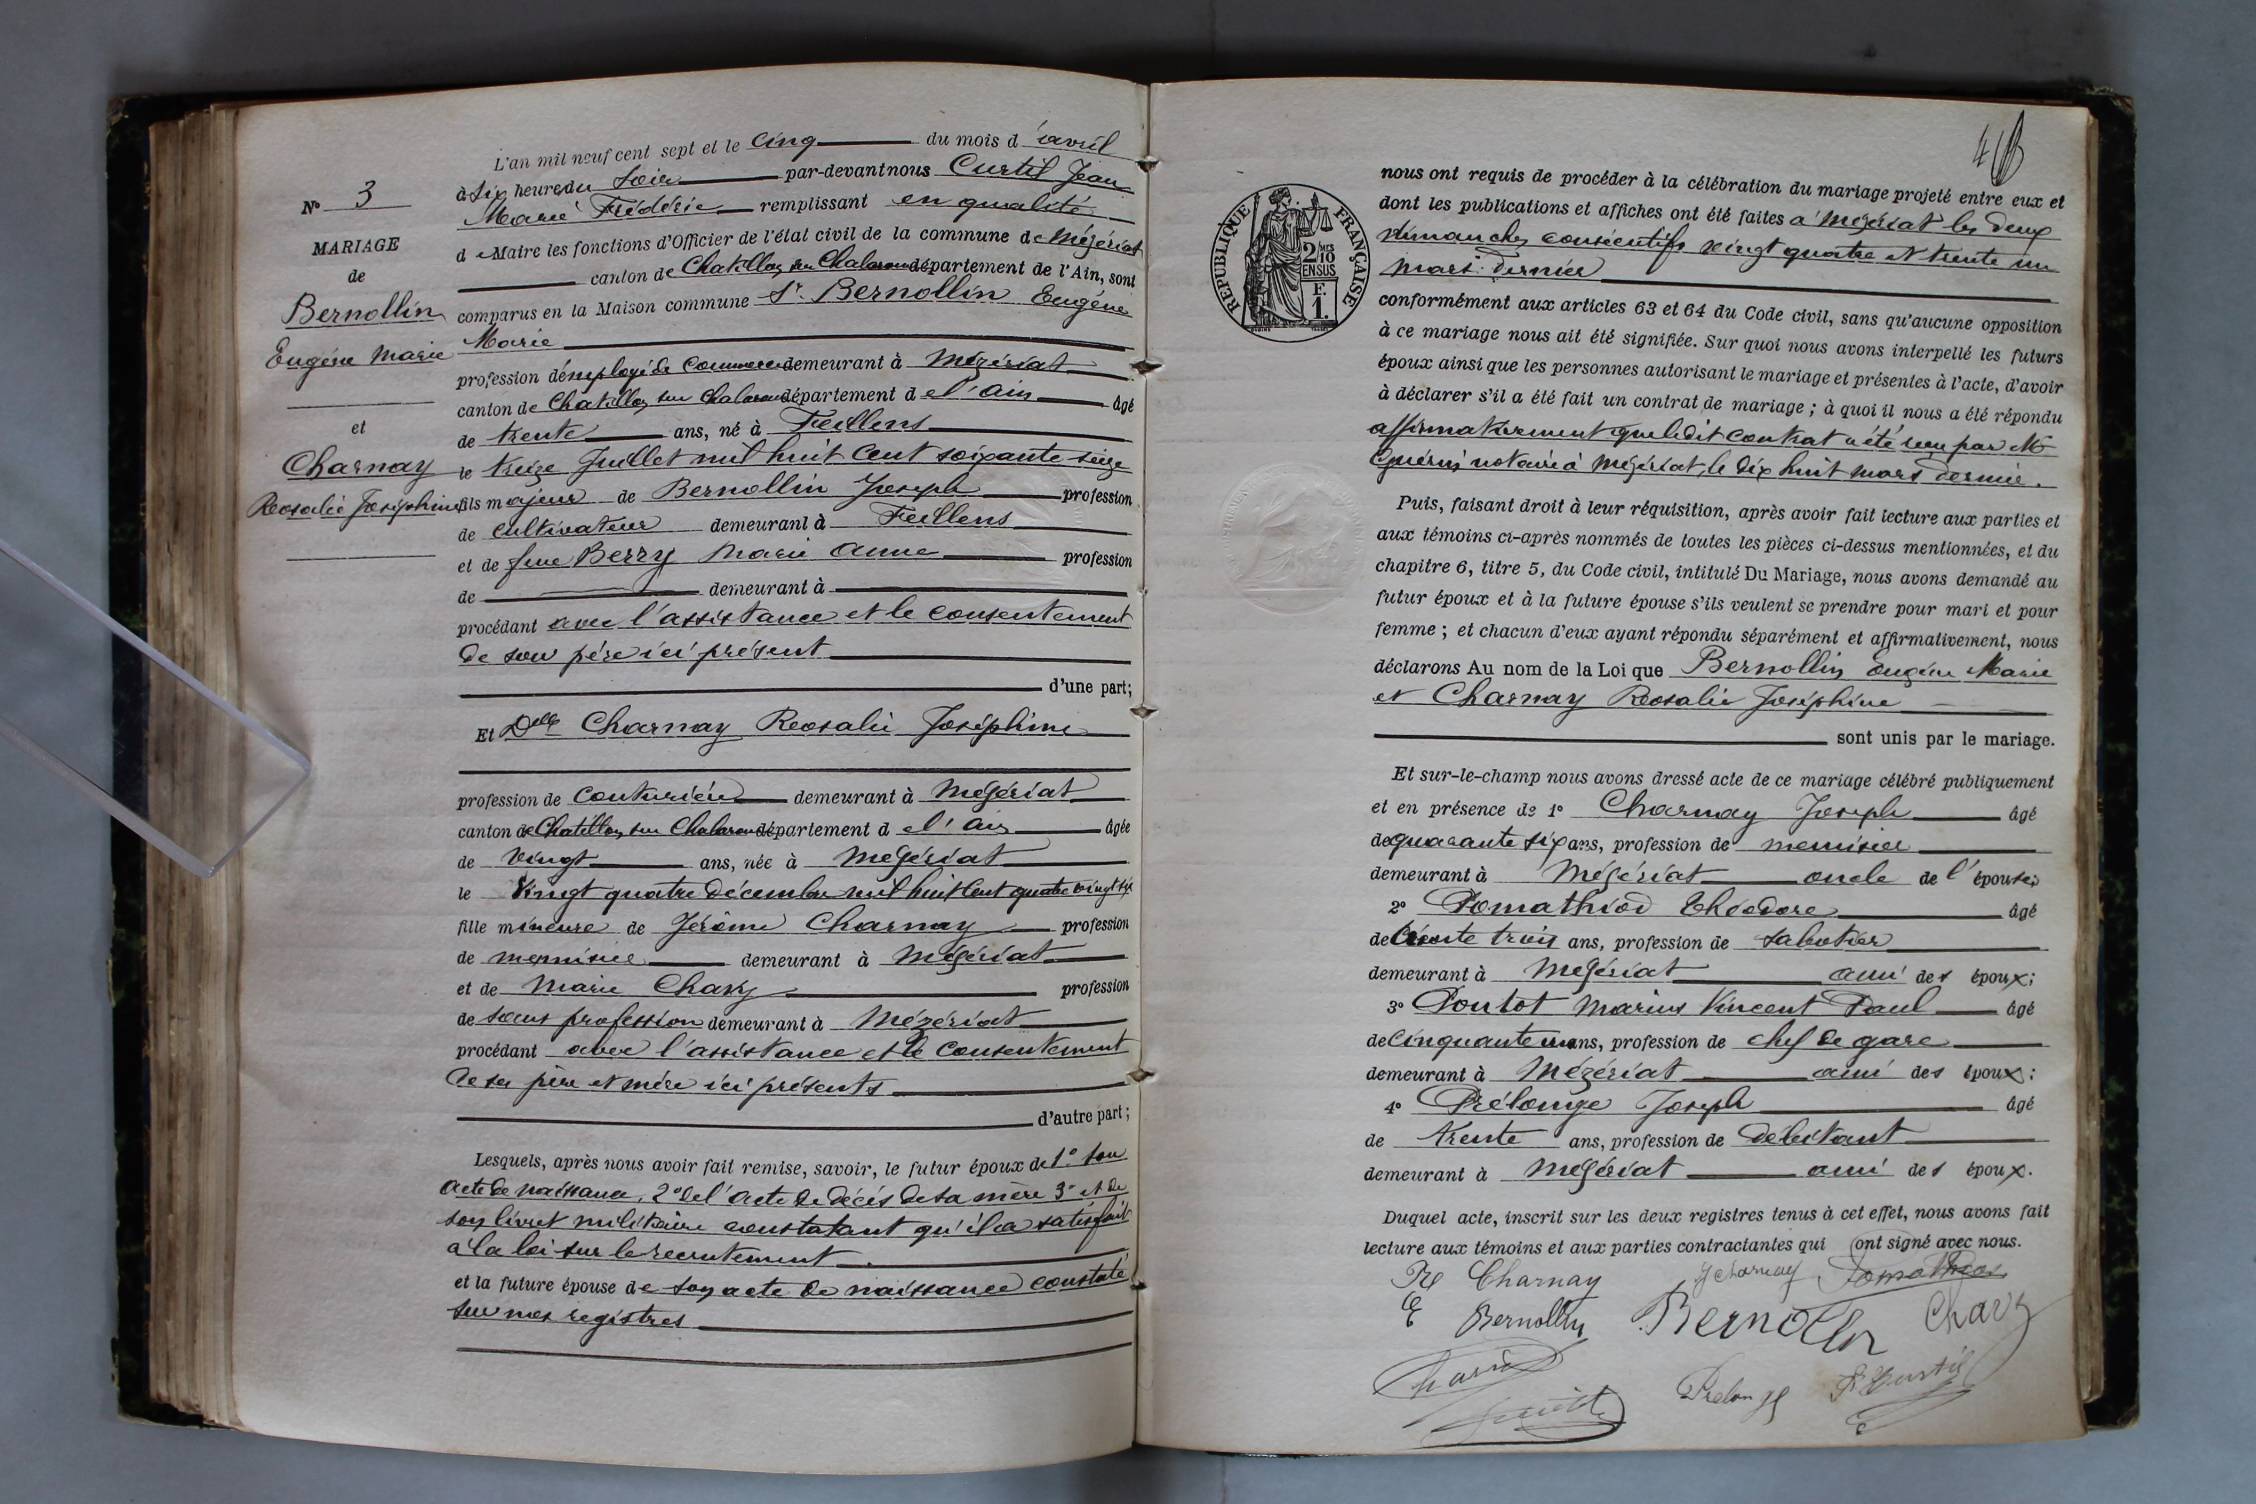 L'an mil neuf cent sept et le cinq du mois d'avril
à six heures du soir par-devant nous Curtil Jean
Marie Frédéric remplissant en qualité
de Maire les fonctions d'Officier de l'état civil de la commune de Mézériat
canton de Chatillon sur Chalaronne département de l'Ain, sont
comparus en la Maison commune Sr. Bernollin Eugène
Marie
profession d'employé de commerce demeurant à Mézériat
canton de Chatillon sur Chalaronne département de l'Ain âgé
de trente ans, né à Feillens
le treize Juillet mil huit cent soixante seize
fils majeur de Bernollin Joseph profession
de cultivateur demeurant à Feillens
et de feue Berry Marie Anne profession
de demeurant à
procédant avec l'assistance et le consentement
de son père ici présent
d'une part;
Et Delle Charnay Rosalie Joséphine
profession de couturière demeurant à Mézériat
canton de Chatillon sur Chalaronne département de l'Ain âgée
de vingt ans, née à Mézériat
le vingt quatre décembre mil huit cent quatre vingt six
fille mineure de Jérôme Charnay profession
de menuisier demeurant à Mézériat
et de Marie Chavy profession
de sans profession demeurant à Mézériat
procédant avec l'assistance et le consentement
de ses père et mère ici présents
d'autre part;
Lesquels, après nous avoir fait remise, savoir, le futur époux de 1° son
acte de naissance, 2° de l'acte de décès de sa mère 3° et de
son livret militaire constatant qu'il a satisfait
à la loi sur le recrutement.
et la future épouse de son acte de naissance constaté
sur nos registres
N° 3
MARIAGE
de
Bernollin
Eugène Marie
et
Charnay
Rosalie Joséphine
nous ont requis de procéder à la célébration du mariage projeté entre eux et
dont les publications et affiches ont été faites à Mézériat les deux
dimanches consécutifs vingt quatre et trente un
mars dernier
conformément aux articles 63 et 64 du Code civil, sans qu'aucune opposition
à ce mariage nous ait été signifiée. Sur quoi nous avons interpellé les futurs
époux ainsi que les personnes autorisant le mariage et présentes à l'acte, d'avoir
à déclarer s'il a été fait un contrat de mariage ; à quoi il nous a été répondu
affirmativement que ledit contrat a été reçu par Me
notaire à Mézériat, le dix huit mars dernier.
Puis, faisant droit à leur réquisition, après avoir fait lecture aux parties et
aux témoins ci-après nommés de toutes les pièces ci-dessus mentionnées, et du
chapitre 6, titre 5, du Code civil, intitulé Du Mariage, nous avons demandé au
futur époux et à la future épouse s'ils veulent se prendre pour mari et pour
femme ; et chacun d'eux ayant répondu séparément et affirmativement, nous
déclarons Au nom de la Loi que Bernollin Eugène Marie
et Charnay Rosalie Joséphine
sont unis par le mariage.
Et sur-le-champ nous avons dressé acte de ce mariage célébré publiquement
et en présence de 1° Charnay Joseph âgé
de quarante six ans, profession de menuisier
demeurant à Mézériat oncle de l'épouse;
2° Pomathiod Théodore âgé
de trente trois ans, profession de sabotier
demeurant à Mézériat ami des époux;
3° Poulot Marius Vincent Paul âgé
de cinquante un ans, profession de chef de gare
demeurant à Mézériat ami des époux;
4° Prélonge Joseph âgé
de trente ans, profession de débitant
demeurant à Mézériat ami des époux.
Duquel acte, inscrit sur les deux registres tenus à cet effet, nous avons fait
lecture aux témoins et aux parties contractantes qui ont signé avec nous.
Charnay J Charnay Pomathiod
E Bernollin Bernollin Chavy
Prelonge Fr Curtil
RÉPUBLIQUE FRANÇAISE
2/10 MES
EN SUS
F.
1.